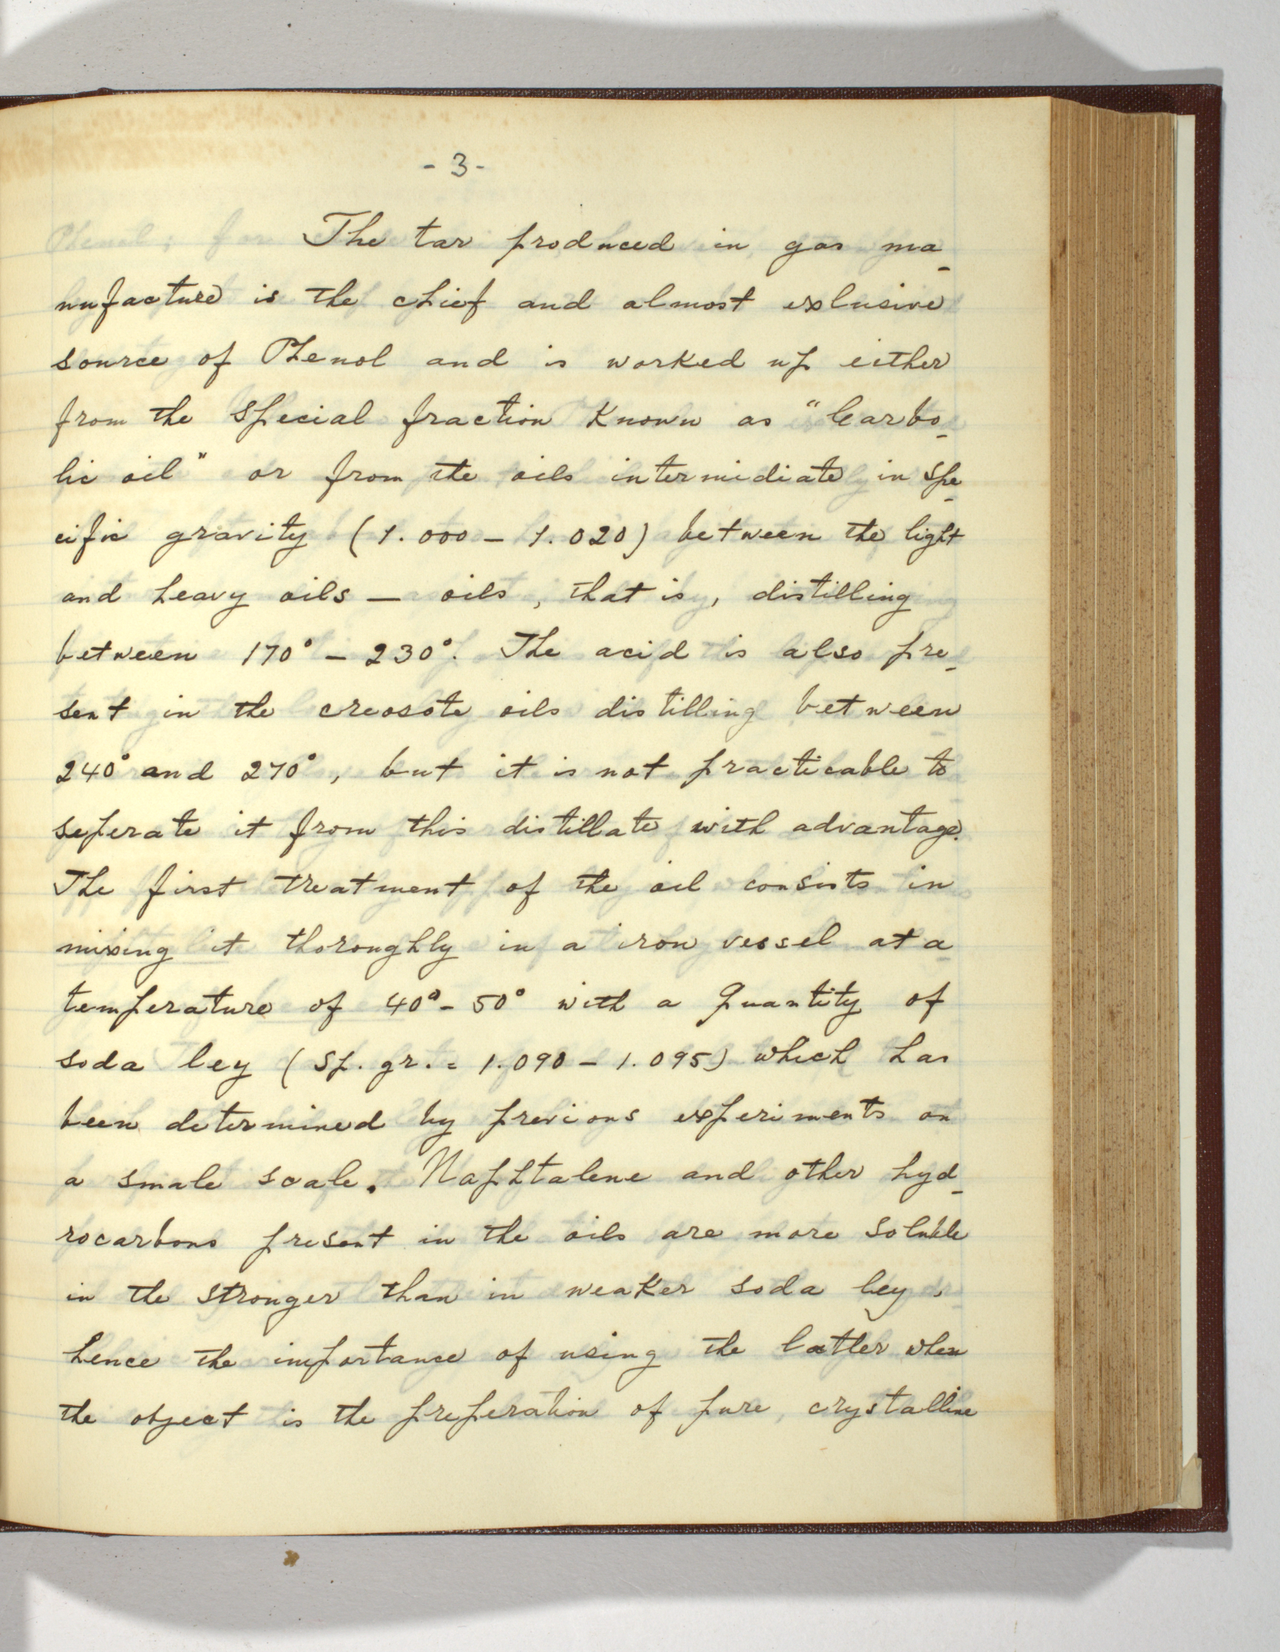 - 3 -
The tar produced in gas ma-
nufacture is the chief and almost exlusive
source of Phenol and is worked up either
from the special fraction known as "Carbo-
lic oil" or from the oils intermidiate in spe-
cific gravity (1.000 - 1.020) between the light
and heavy oils — oils, that is, distilling
between 170° - 230°. The acid is also pre-
sent in the creosote oils distilling between
240° and 270°, but it is not practicable to
seperate it from this distillate with advantage.
The first treatment of the oil consists in
mixing it thoroughly in a iron vessel at a
temperature of 40° - 50° with a quantity of
soda ley (Sp. gr. = 1.090 - 1.095) which has
been determined by previous experiments on
a small scale. Naphtalene and other hyd-
rocarbons present in the oils are more soluble
in the stronger than in weaker soda ley,
hence the importance of using the latter when
the object is the preperation of pure, crystalline